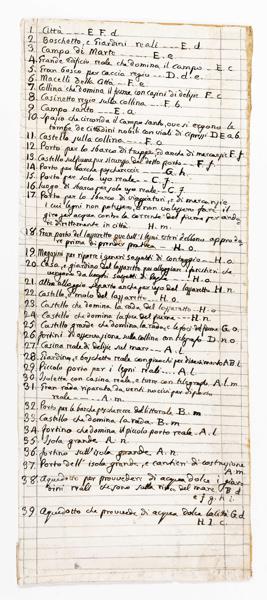 1. Città ___ E. F. d
2. Boschetto, e Giardini reali ___ E. d
3. Campo di Marte ___ E. e
4. Grande edificio reale che domina il campo _ E. c
5. Gran bosco per caccia regia _ D. d. e.
6. Macelli della Città _ F. e
7. Collina che domina il fiume con casini di delizie F. c
8. Casinetto regio sulla collina _ F. b.
9. Campo santo ___ E. a
10. Spazio che circonda il campo santo, ove si ergono le
tombe de Cittadini nobili con viali di cipressi D E a b
11. Castello sulla collina ___ F. o
12. Porto per lo sbarco di truppe, o anche di mercanzie F. f
13. Castello sul fiume per sicurezza del detto porto _ F. f
14. Porto per barche pescherecce _ G. h
15. Porto per solo uso reale _ C. f
16. Luogo di sbarco per solo uso reale _ C. f
17. Porto per lo sbarco di viaggiatori, e di mercanzie
i cui legni non potessero, o non volessero fare il
giro per acqua contro la corrente del fiume per andare
direttamente in città _ H. m
18. Gran porto del lazzaretto ove tutti i legni esteri debbono approda
re prima di prender pratica _ H. o
19. Magazini per riporre i generi sospetti di contaggio _ H. o
20. Casa, e giardino del lazzaretto per alloggiare i forestieri che
vengono da luoghi sospetti di peste _ H. o
21. Altro alloggio separato anche per uso del lazzaretto H. n
22. Castello, e molo del lazzaretto _ H. o.
23. Castello che domina la rada del lazzaretto _ H. o
24. Castello che domina la foce del fiume _ H. n
25. Castello grande che domina la rada, e le foci del fiume G. o
26. Fortini di osservazione sulla collina con telegrafo D. n o
27. Casina reale di delizie sul mare _ A. l
28. Giardino, e boschetto reale con giuochi per divertimento A B l
29. Piccolo porto per i legni reali _ A. l
30. Isoletta con casina reale, e torre con telegrafo A. l m
31. Gran rada riparata da venti nocivi per diporto
reale ___ A. m
32. Porto per le barche pescherecce del littorale B. m
33. Castello che domina la rada _ B. m
34. Fortino che domina il piccolo porto reale _ A. l
35. Isola grande _ A. n
36. Fortino sull'isola grande _ A. n
37. Porto dell'isola grande, e cantieri di costruzione
A m
38. Aquedotto per provvedere di acqua dolce i giar
dini reali che sono sulla riva del mare B d
e f g h i l
39. Aquedotto che provvede di acqua dolce la città G d
H. I. c